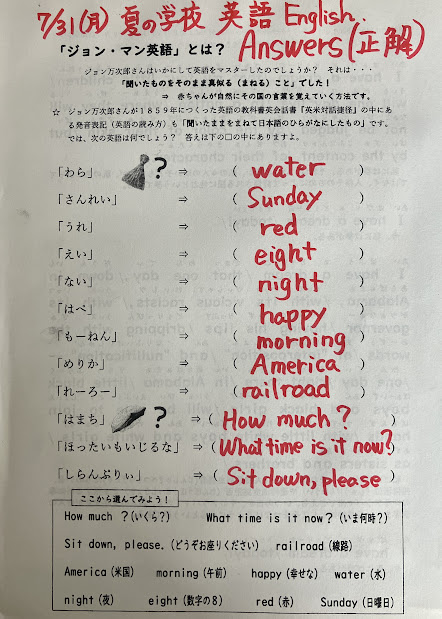 7/31(月) 夏の学校 英語 English.
「ジョン・マン英語」とは? Answers(正解)
ジョン万次郎さんはいかにして英語をマスターしたのでしょうか? それは・・・
「聞いたものをそのまま真似る(まねる)こと」でした!
⇒ 赤ちゃんが自然にその国の言葉を覚えていく方法です。
☆ ジョン万次郎さんが1859年につくった英語の教科書英会話書『英米対話捷径』の中にあ
る発音表記(英語の読み方)も「聞いたままをまねて日本語のひらがなにしたもの」です。
では、次の英語は何でしょう? 答えは下の□の中にありますよ。
「わら」 ? ⇒ ( water )
「さんれい」 ⇒ ( Sunday )
「うれ」 ⇒ ( red )
「えい」 ⇒ ( eight )
「ない」 ⇒ ( night )
「はぺ」 ⇒ ( happy )
「もーねん」 ⇒ ( morning )
「めりか」 ⇒ ( America )
「れーろー」 ⇒ ( railroad )
「はまち」 ? ⇒ ( How much ? )
「ほったいもいじるな」 ⇒ ( What time is it now? )
「しらんぷりぃ」 ⇒ ( Sit down, please )
ここから選んでみよう!
How much ?(いくら?) What time is it now?(いま何時?)
Sit down, please.(どうぞお座りください) railroad(線路)
America(米国) morning(午前) happy(幸せな) water(水)
night(夜) eight(数字の8) red(赤) Sunday(日曜日)